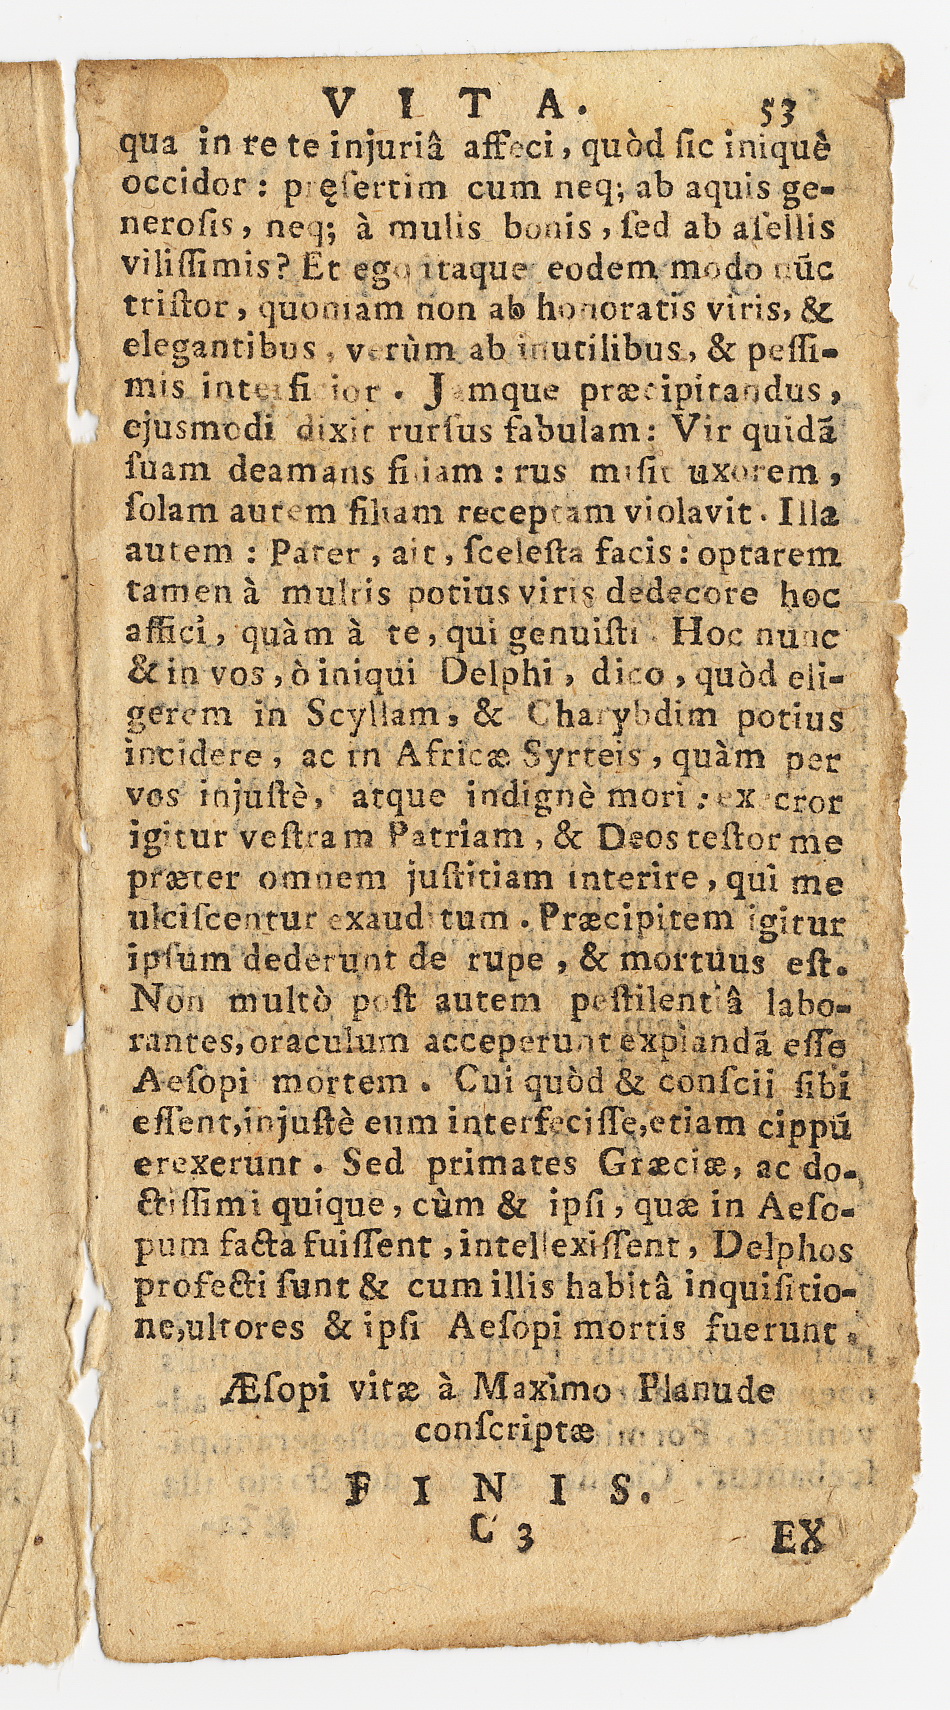 VITA. 53
qua in re te injuriâ affeci, quòd ſic iniquè
occidor : pręſertim cum neq; ab aquis ge-
neroſis, neq; à mulis bonis, ſed ab aſellis
viliſſimis? Et ego itaque eodem modo nūc
triſtor, quoniam non ab honoratis viris, &
elegantibus, verùm ab inutilibus, & peſſi-
mis interficior. Jamque præcipitandus,
ejusmodi dixit rurſus fabulam: Vir quidā
ſuam deamans filiam: rus miſit uxorem,
ſolam autem filiam receptam violavit. Illa
autem : Pater, ait, ſceleſta facis: optarem
tamen à multis potius viris dedecore hoc
affici, quàm à te, qui genuiſti. Hoc nunc
& in vos, ò iniqui Delphi, dico, quòd eli-
gerem in Scyllam, & Charybdim potius
incidere, ac in Africæ Syrteis, quàm per
vos injuſtè, atque indignè mori: execror
igitur veſtram Patriam, & Deos teſtor me
præter omnem juſtitiam interire, qui me
ulciſcentur exauditum. Præcipitem igitur
ipſum dederunt de rupe, & mortuus eſt.
Non multò poſt autem peſtilentiâ labo-
rantes, oraculum acceperunt expiandā eſſe
Aeſopi mortem. Cui quòd & conſcii ſibi
eſſent, injuſtè eum interfeciſſe, etiam cippū
erexerunt. Sed primates Græciæ, ac do-
ctiſſimi quique, cùm & ipſi, quæ in Aeſo-
pum facta fuiſſent, intellexiſſent, Delphos
profecti ſunt & cum illis habitâ inquiſitio-
ne, ultores & ipſi Aeſopi mortis fuerunt.
Æſopi vitæ à Maximo Planude
conſcriptæ
FINIS.
C 3 EX